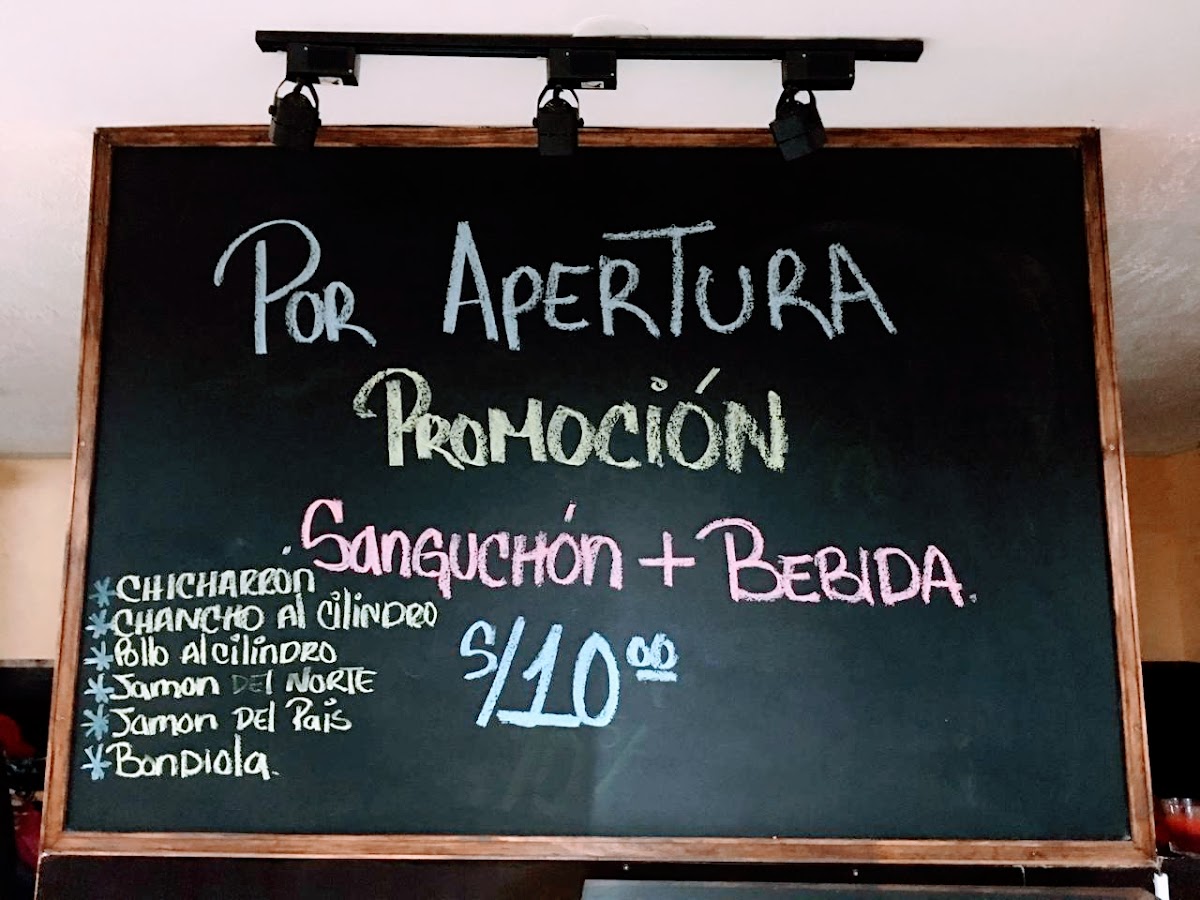 Por APERTURA
PROMOCIÓN
SANGUCHÓN + BEBIDA.
* CHICHARRÓN
* CHANCHO Al Cilindro
* Pollo Al cilindro
* Jamon DEl NORTE
* Jamon DEl Pais
* BonDiola.
S/10.00